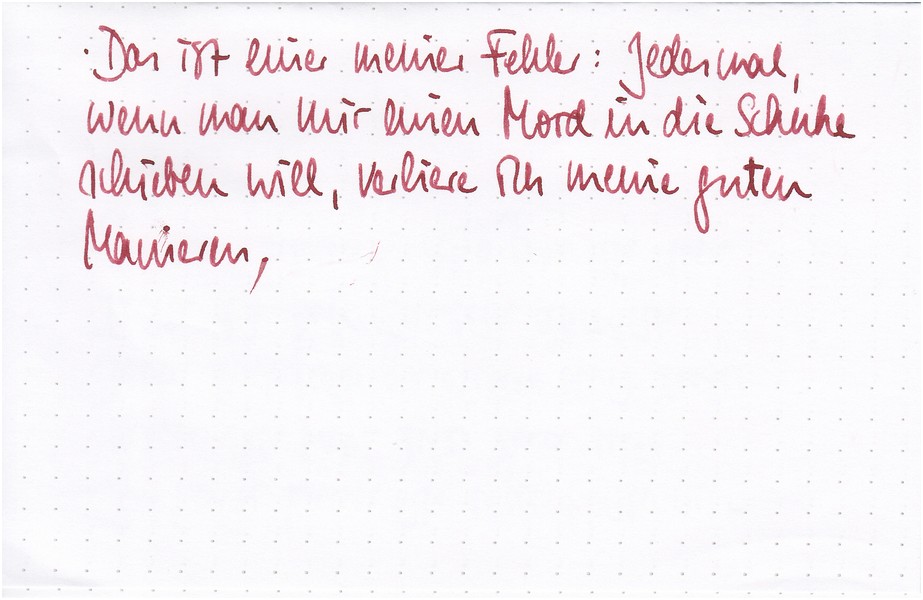 · Das ist einer meiner Fehler: Jedesmal,
wenn man mir einen Mord in die Schuhe
schieben will, verliere ich meine guten
Manieren,